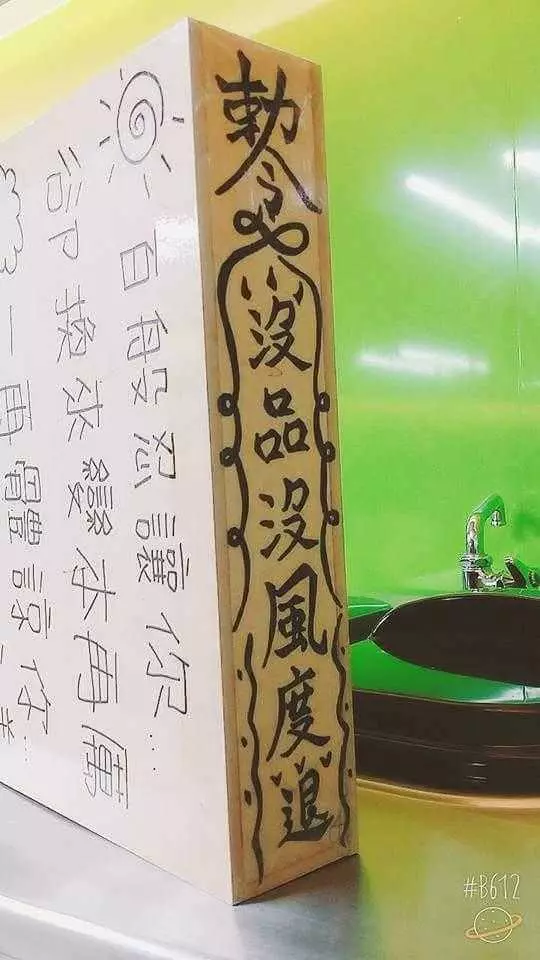 勅令
沒品沒風度退
百般忍讓你...
卻換來變本再厲
一再體諒你...
#B612